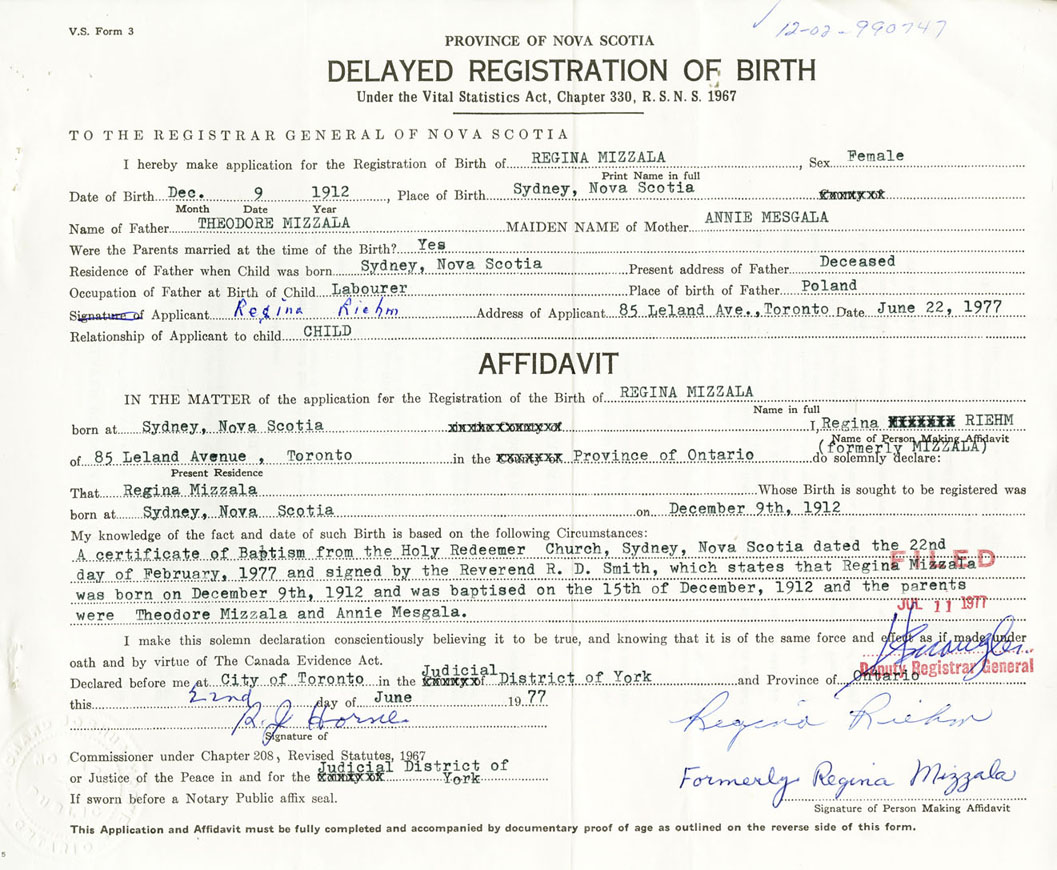 V.S. Form 3
12-02-990747
PROVINCE OF NOVA SCOTIA
DELAYED REGISTRATION OF BIRTH
Under the Vital Statistics Act, Chapter 330, R.S.N.S. 1967
TO THE REGISTRAR GENERAL OF NOVA SCOTIA
I hereby make application for the Registration of Birth of REGINA MIZZALA, Sex Female
Print Name in full
Date of Birth Dec. 9 1912, Place of Birth Sydney, Nova Scotia
Month Date Year
Name of Father THEODORE MIZZALA MAIDEN NAME of Mother ANNIE MESGALA
Were the Parents married at the time of the Birth? Yes
Residence of Father when Child was born Sydney, Nova Scotia Present address of Father Deceased
Occupation of Father at Birth of Child Labourer Place of birth of Father Poland
Signature of Applicant Regina Riehm Address of Applicant 85 Leland Ave., Toronto Date June 22, 1977
Relationship of Applicant to child CHILD
AFFIDAVIT
IN THE MATTER of the application for the Registration of the Birth of REGINA MIZZALA
Name in full
born at Sydney, Nova Scotia I, Regina RIEHM
Name of Person Making Affidavit
(formerly MIZZALA)
of 85 Leland Avenue, Toronto in the Province of Ontario do solemnly declare:
Present Residence
That Regina Mizzala Whose Birth is sought to be registered was
born at Sydney, Nova Scotia on December 9th, 1912
My knowledge of the fact and date of such Birth is based on the following Circumstances:
A certificate of Baptism from the Holy Redeemer Church, Sydney, Nova Scotia dated the 22nd
FILED
day of February, 1977 and signed by the Reverend R. D. Smith, which states that Regina Mizzala
was born on December 9th, 1912 and was baptised on the 15th of December, 1912 and the parents
were Theodore Mizzala and Annie Mesgala.
JUL 11 1977
I make this solemn declaration conscientiously believing it to be true, and knowing that it is of the same force and effect as if made under
oath and by virtue of The Canada Evidence Act.
Deputy Registrar General
Declared before me at City of Toronto in the Judicial District of York and Province of Ontario
this 22nd day of June 1977
R. J. Horne
Regina Riehm
Signature of
Commissioner under Chapter 208, Revised Statutes, 1967
or Justice of the Peace in and for the Judicial District of York
Formerly Regina Mizzala
Signature of Person Making Affidavit
If sworn before a Notary Public affix seal.
This Application and Affidavit must be fully completed and accompanied by documentary proof of age as outlined on the reverse side of this form.
5